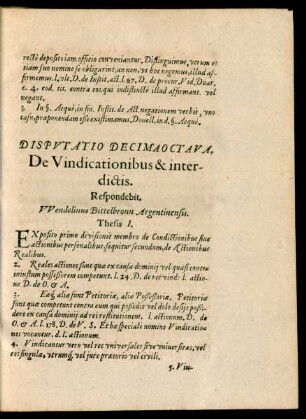 rectè depositi eam officio conveniantur. Distinguimus, utrum et
iam suo nomine se obligarint, an non, et hoc negemus, illud af-
firmemus. l. ult. D. de Instit. act. l. 67. D. de procur. Vid. Duar.
c. 4. cod. tit. contra eos, qui indistinctè illud affirmant. vel
negant.
3. In §. Aequè, in fin. Instit. de Act. negationem verbis, uno
casu, praeponendam esse existimamus, Donell. in d. §. Aequè.
DISPVTATIO DECIMAOCTAVA,
De Vindicationibus & inter-
dictis.
Respondebit.
VVendelinus Bittelbronn Argentinensis.
Thesis I.
EXposito primo divisionis membro de Condictionibus sive
actionibus personalibus, sequitur secundum, de Actionibus
Realibus.
2. Reales actiones sunt quae ex causa dominij vel quasi contra
iniustum possessorem competunt. l. 24. D. de rei vind: l. actio-
num D. de O. & A.
3. Eaeque, aliae sunt Petitoriae, aliae Possessoriae. Petitoriae
sunt quae competunt contra eum qui possidet vel dolo desijt possi-
dere ex causa dominij ad rei restitutionem. l. actionum. D. de
O. & A. l. 178. D. de V. S. Et hae speciali nomine Vindicatio-
nes vocantur. d. l. actionum.
4. Vindicantur vero vel res universales sive universitas, vel
res singulae, utrumque, vel jure praetorio vel civili.
5. Vin-